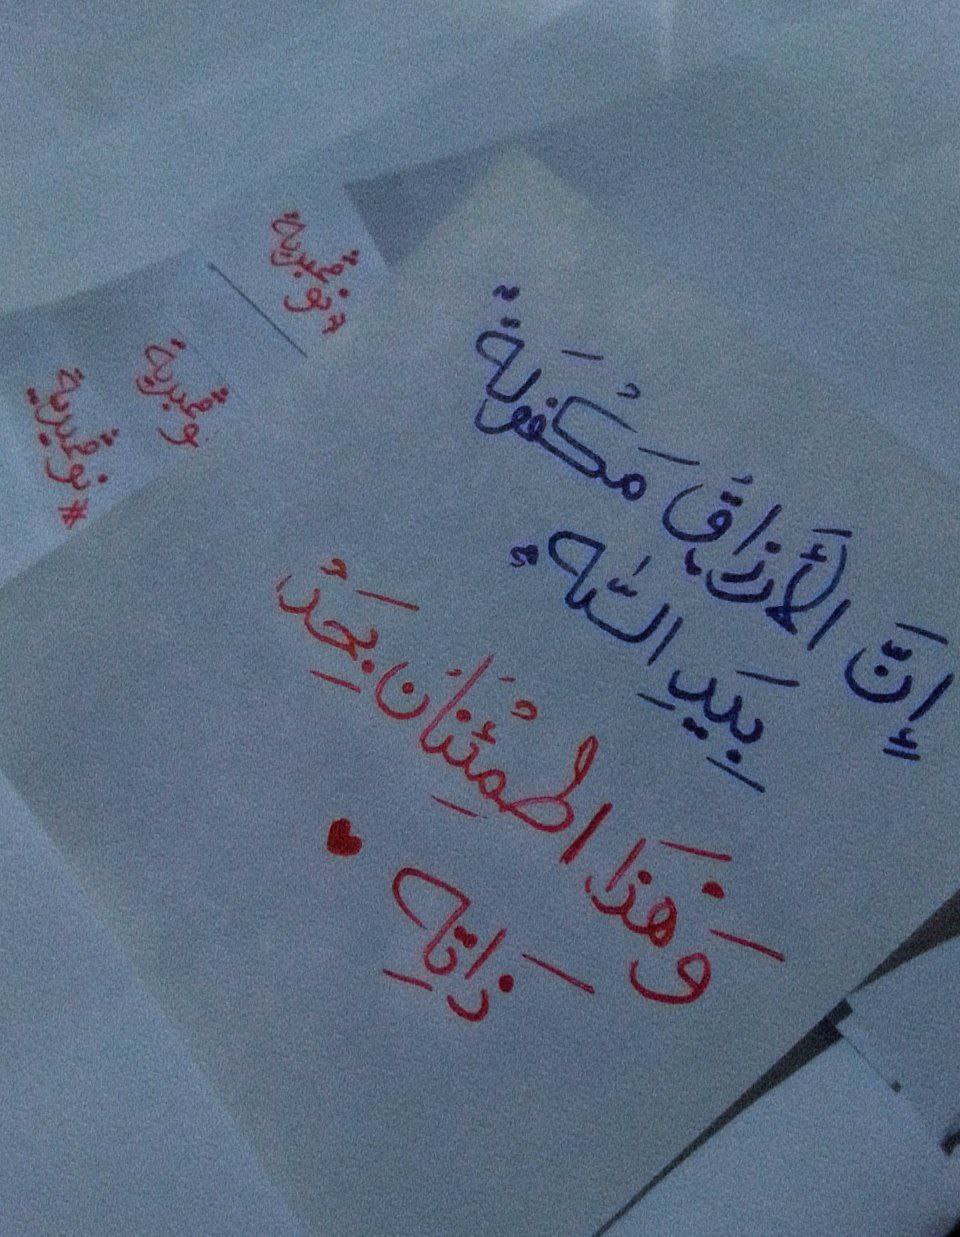 إِنَّ الأَرْزَاقَ مَكْفُولَةٌ
بِيَدِ اللّٰه
وَهَذَا اطْمُئِنَانَ بِحَدُ
ذَاتِه
#نوڤمبرية
نوڤمبرية
#نوڤمبرية